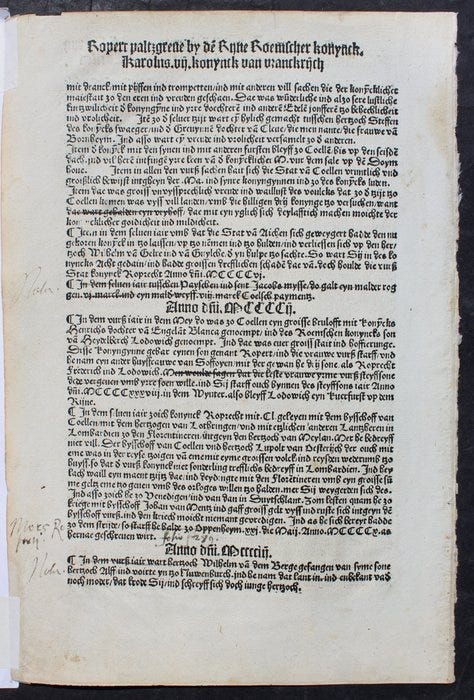 Ropert paltzgreue by dē Rijne Roemscher konynck.
Karolus .vij. konynck van vranckrijch
mit dranck mit pijffen ind trompetten / ind mit anderen vill sachen die der konyncklicher
maiestait zo den eren ind vreuden geschaen. Dae was wūderliche ind alzo sere lustliche
kurtzwilicheit d konyngynne ind yrre dochterē ind anderē Edelē jonfferē tzo behechlicheit
ind vrolicheit. Itē zo d seluer tzijt wart ey bylich gemacht tusschen hertzoch Steffen
des konyncks swaeger / ind d Greuynne dochter vā Cleue / die men nante / die frauwe vā
Bornheym. Ind also wart ey vreude ind vrolicheit versamelt zo d anderen.
Item d konynck mit den synen ind mit anderen fursten bleyff zo Coellē bis vp den
dach / ind vil heren intfingē yre leen vā d konyncklicher M. vur dem sale vp dē Doym
houe. Item in allen den vurß sachen hait sich die Stat vā Coellen vruntlich vnd
groißlich bewijst intgheyn der Ma. ind synre konyngynnen ind zo des konyncks luden.
Item dae was groiss vnvyssprechlich vreude ind waillust des volcks dat zo d tzijt tzo
Coellen komen was vyss vill landen / vmb die billigen drij konynge tzo versuchen / want
dae wart gehalden eyn vryhoff / dat mit eyn yglich sich deylafftich machen moichte der
konyncklicher goidicheit ind mildicheit.
¶ Item in dem seluen iair vmb dat die Stat vā Aichen sich geweygert hadde den nu
gekoren konynck in tzo laissen / vp tzo nemen ind tzo hulden / ind verliessen sich vp den her-
tzoch Wilhelm vā Gelre ind vā Guylche / d yn hulpe tzo sachte. So wart Sij in des ko
nyncks Acht gedain / ind hadde groissen drefflichen schadē dae vā. doch houlde die vurß
Stat konynck Roprecht Anno dñi. MCCCCvij.
¶ In dem seluen iair tusschen Payschen ind sent Jacobs mysse / do galt eyn malder rog
gen .vij. marck / ind eyn mald weyss .viij. marck Coelsch payments.
Anno dñi. MCCCCij.
¶ In dem vurß iair in dem Mey do was zo Coellen eyn groisse brulofft mit konyncks
Henrichs dochter vā Engelāt Blanca genoempt / ind des Roemschen konyncks son
vā Heydelberch Lodowich genoempt. Ind dae was ouer groiss stait ind hoffierunge.
Disse konyngynne gebar eynen son genant Ropert / ind die vrauwe vurß starff / ind
he nam eyn ander huysfrauwe vā Soffoyen / mit der gewan he drij sone. als Ropricht
Frederich ind Lodowich. Men woulde sagen dat die leste vrauwe yrme vurß steyffsone
dede vergeuen vmb yrre soen wille. ind Sij starff ouch bynnen des steyffsons iair Anno
dñi. MCCCCxxxvij. in dem Wynter. also bleyff Lodowich eyn kurfurst vp dem
Rijne.
¶ In dem seluen iair zoich konynck Roprecht mit .CL. geleyen mit dem bysschoff van
Coellen / mit dem hertzogen van Lothringen / ind mit etzlichen anderen Lantzheren in
Lombardien zo den Florentineren / intgeyn den hertzoch van Meylan. Mer he bedreyff
niet vill. Der bysschoff van Coellen ind hertzoch Lupolt van Oesterijch der ouch mit
eme was in der reyse / tzoigen vā eme mit eyme groissen volck / ind reysden wederumb tzo
huyss. so dat d vurß konynck niet sonderling trefflichs bedreyff in Lombardien. Ind hey
lach waill eyn maent tzijtz dae / ind deydingde mit den Florentineren vmb eyn groiss sū
me geltz eme tzo geuen vmb des orloges willen tzo halden. mer Sij weygerden sich des.
Ind also zoich he zo Venedigen / ind van dan in Duytschlant. Zom lesten quam he zo
kriege mit bysschoff Johan van Mentz ind gaff groiss gelt vyss ind ruste sich intgeyn dē
bysschoff vurß. ind den kriech moicht niemant gevredigen. Ind as he sich bereyt hadde
zo dem stryde / so starff he / balde zo Oppenheym .xxj. die Maij. Anno. MCCCCx. as
hernae geschreuen wirt.
folio 289
Anno dñi. Mccccciij.
¶ In dem vurß iair wart hertzoch Wilhelm vā dem Berge gefangen van syme sone
hertzoch Alff ind voirte yn tzo Nuwenburch. ind he nam dat lant in. ind enbekant vad
noch moder / dat krode Sij / ind schreyff sich doch iunge hertzoch.